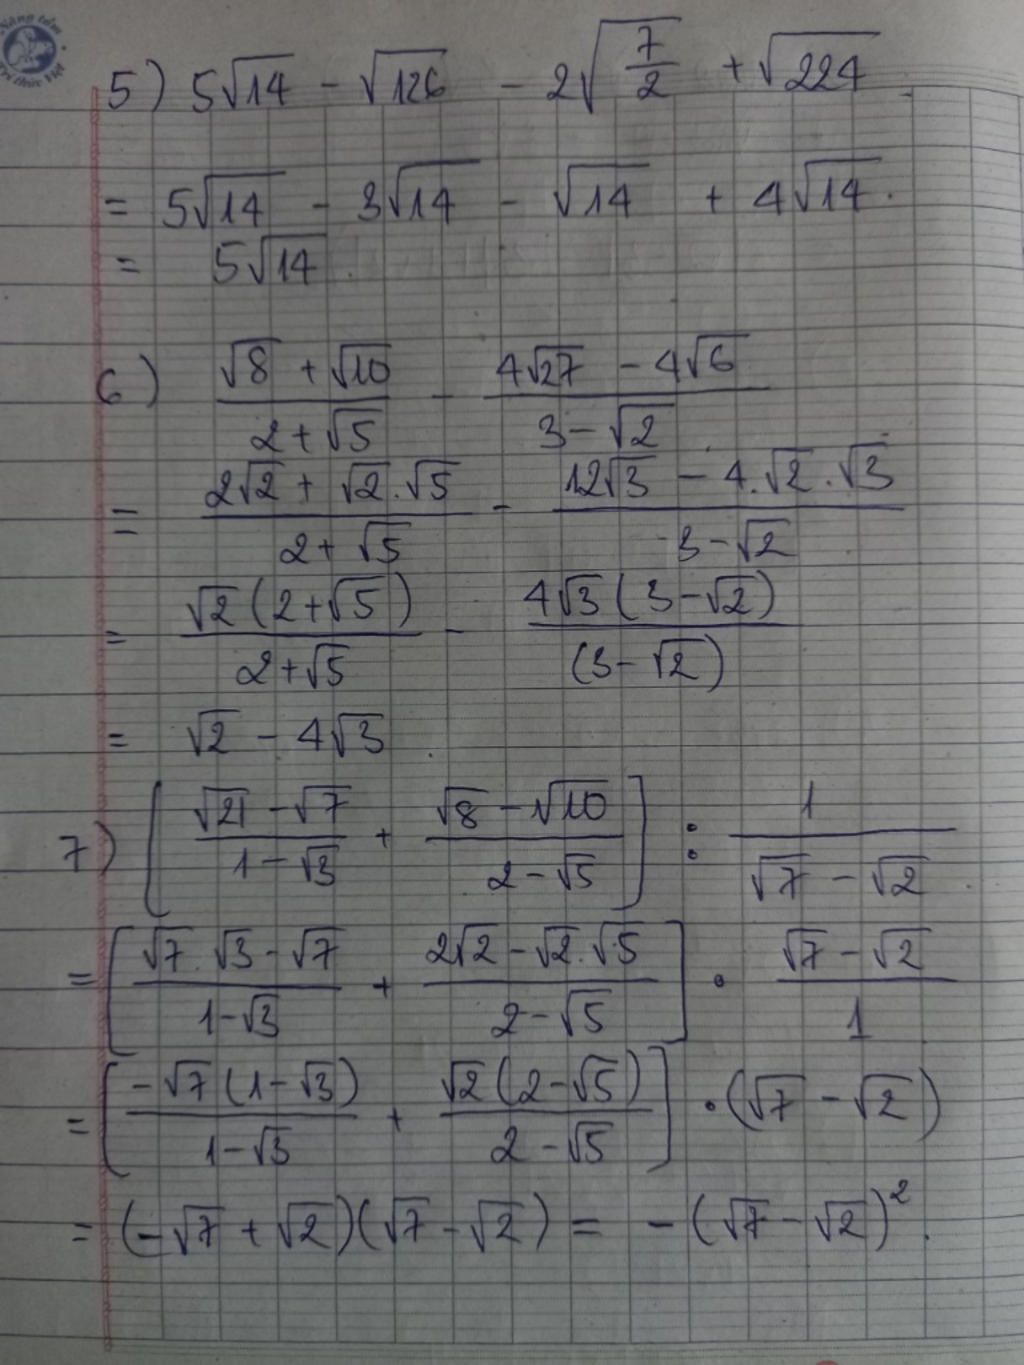 Nâng tầm
Tri thức Việt
5) 5√14 - √126 - 2√(7/2) + √224
= 5√14 - 3√14 - √14 + 4√14.
= 5√14
6) (√8 + √10)/(2 + √5) - (4√27 - 4√6)/(3 - √2)
= (2√2 + √2.√5)/(2 + √5) - (12√3 - 4.√2.√3)/(3 - √2)
= (√2(2+√5))/(2+√5) - (4√3(3-√2))/((3-√2))
= √2 - 4√3
7) [(√21 - √7)/(1 - √3) + (√8 - √10)/(2 - √5)] : 1/(√7 - √2)
= [(√7.√3 - √7)/(1-√3) + (2√2 - √2.√5)/(2-√5)] . (√7 - √2)/1
= [(-√7(1-√3))/(1-√3) + (√2(2-√5))/(2-√5)] . (√7 - √2)
= (-√7 + √2)(√7 - √2) = -(√7 - √2)².